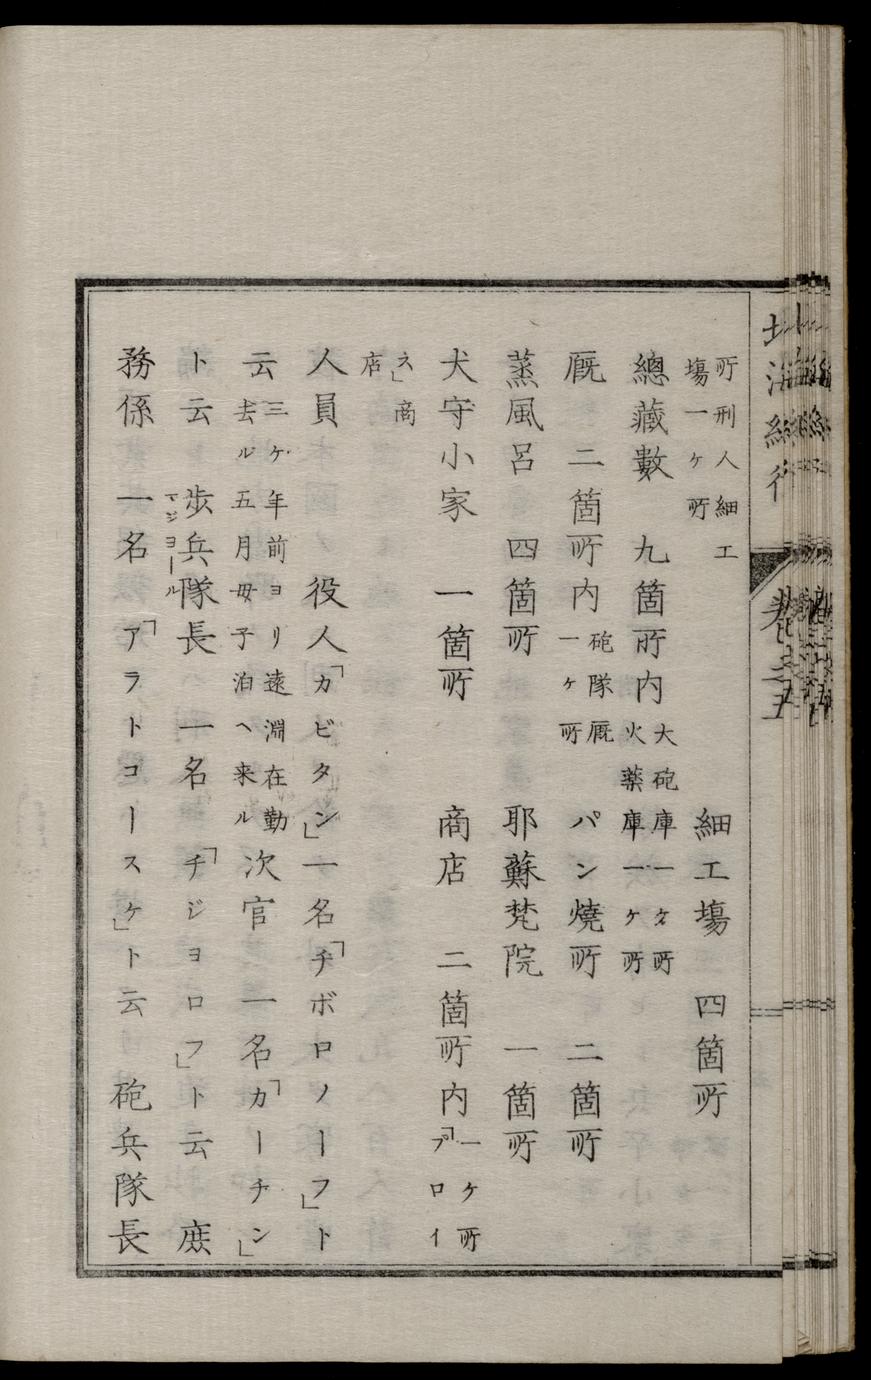 所刑人細工
塲一ヶ所
細工塲　四箇所
總藏數　九箇所内大砲庫一ヶ所
火藥庫一ヶ所
厩　二箇所内砲隊厩
一ヶ所
パン燒所　二箇所
蒸風呂　四箇所　耶蘇梵院　一箇所
犬守小家　一箇所　商店　二箇所内一ヶ所
「プロイ
ス」商
店
人員　役人「カビタン」一名「チボロノーフ」ト
云三ケ年前ヨリ遠淵在勤
去ル五月毋子泊ヘ来ル
次官　一名「カーチン」
ト云　歩兵隊長　一名「チジヨロフ」ト云　庶
マジヨール
務係　一名「アラトコースケ」ト云　砲兵隊長
北海紀行
卷之五